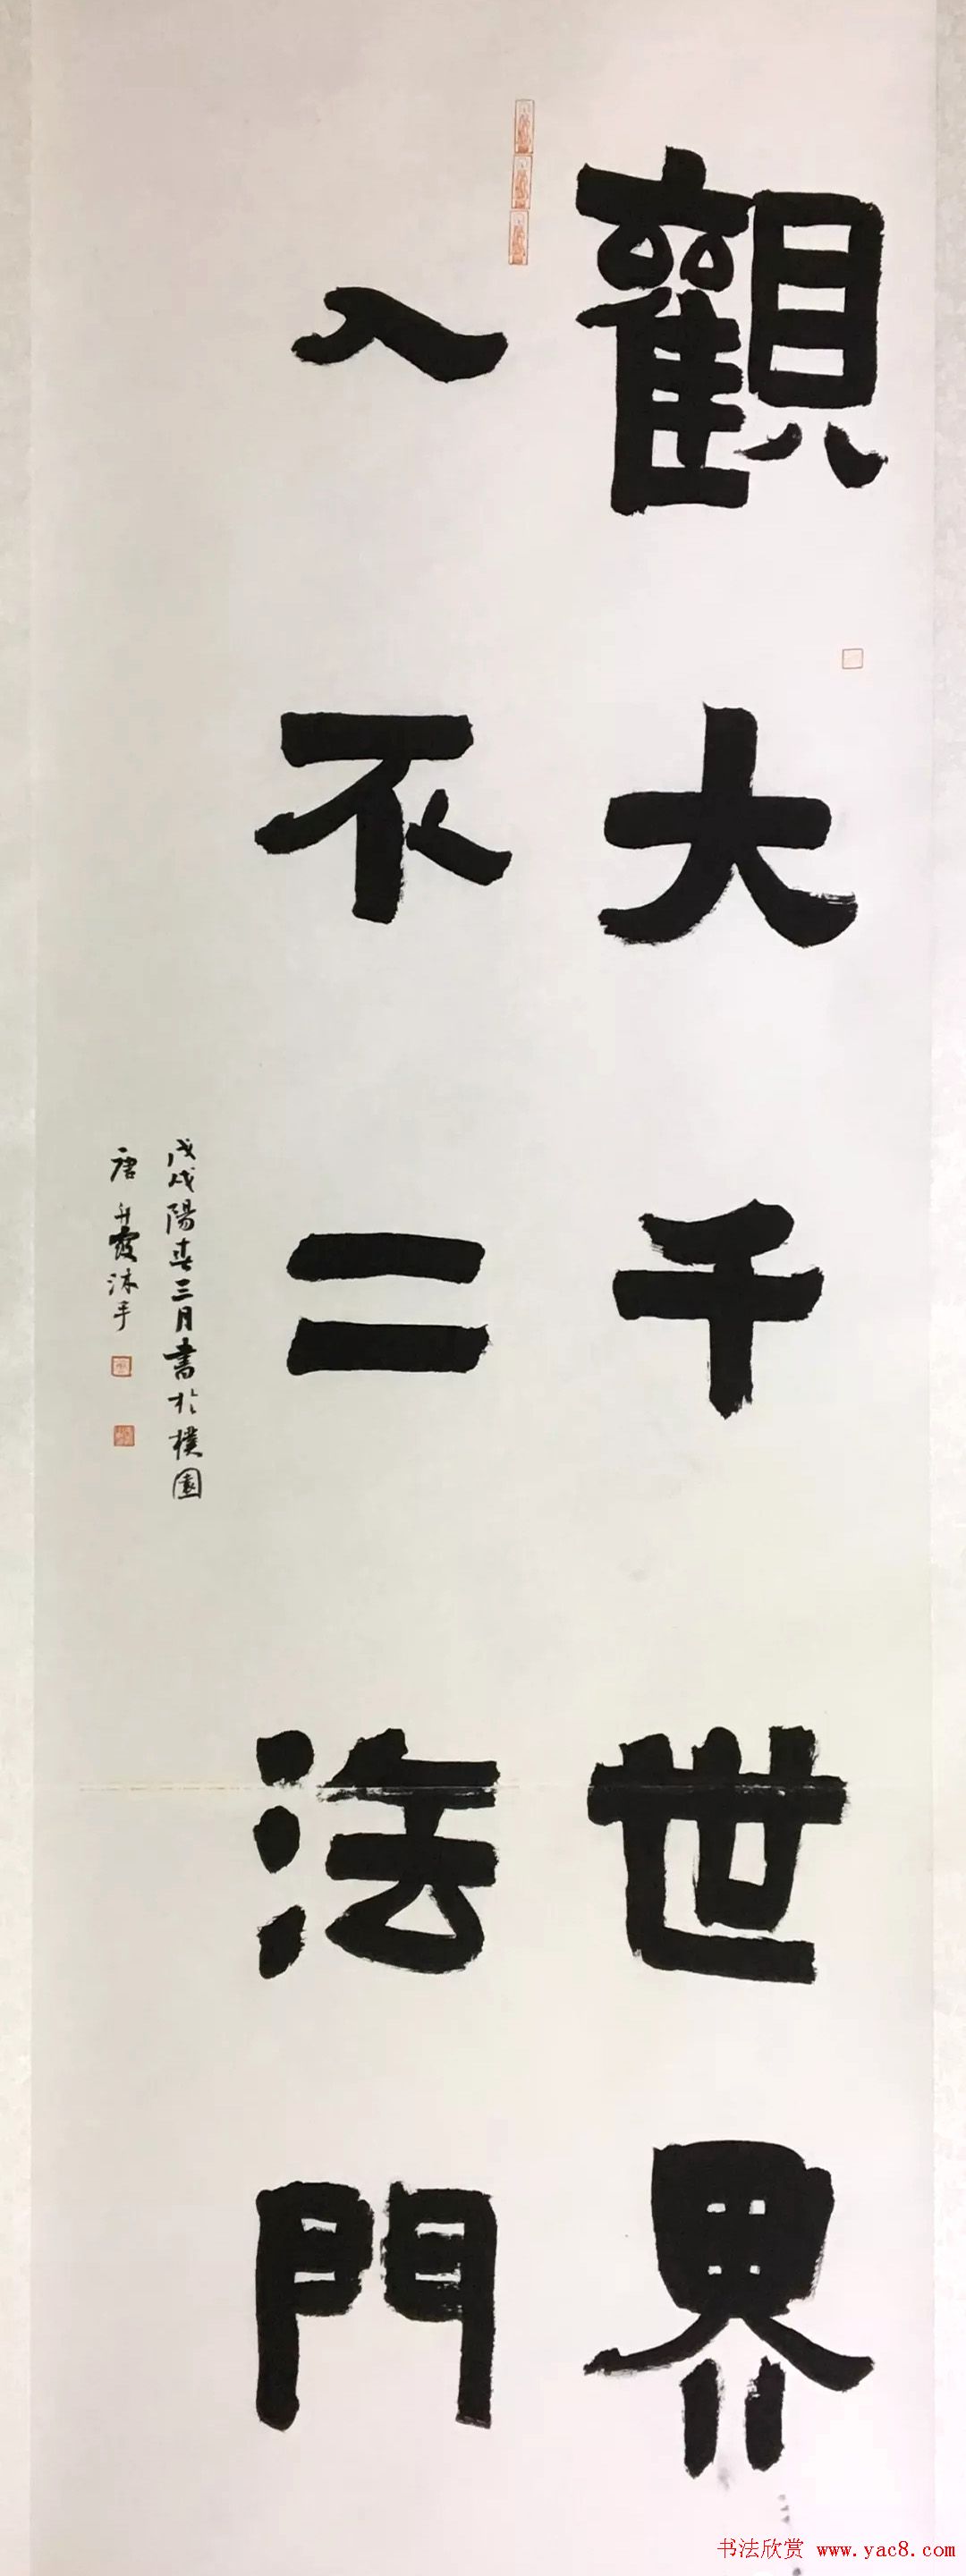 觀大千世界
入不二法門
戊戌陽春三月書於樸園
唐丹霞沐手
书法欣赏 www.yac8.com